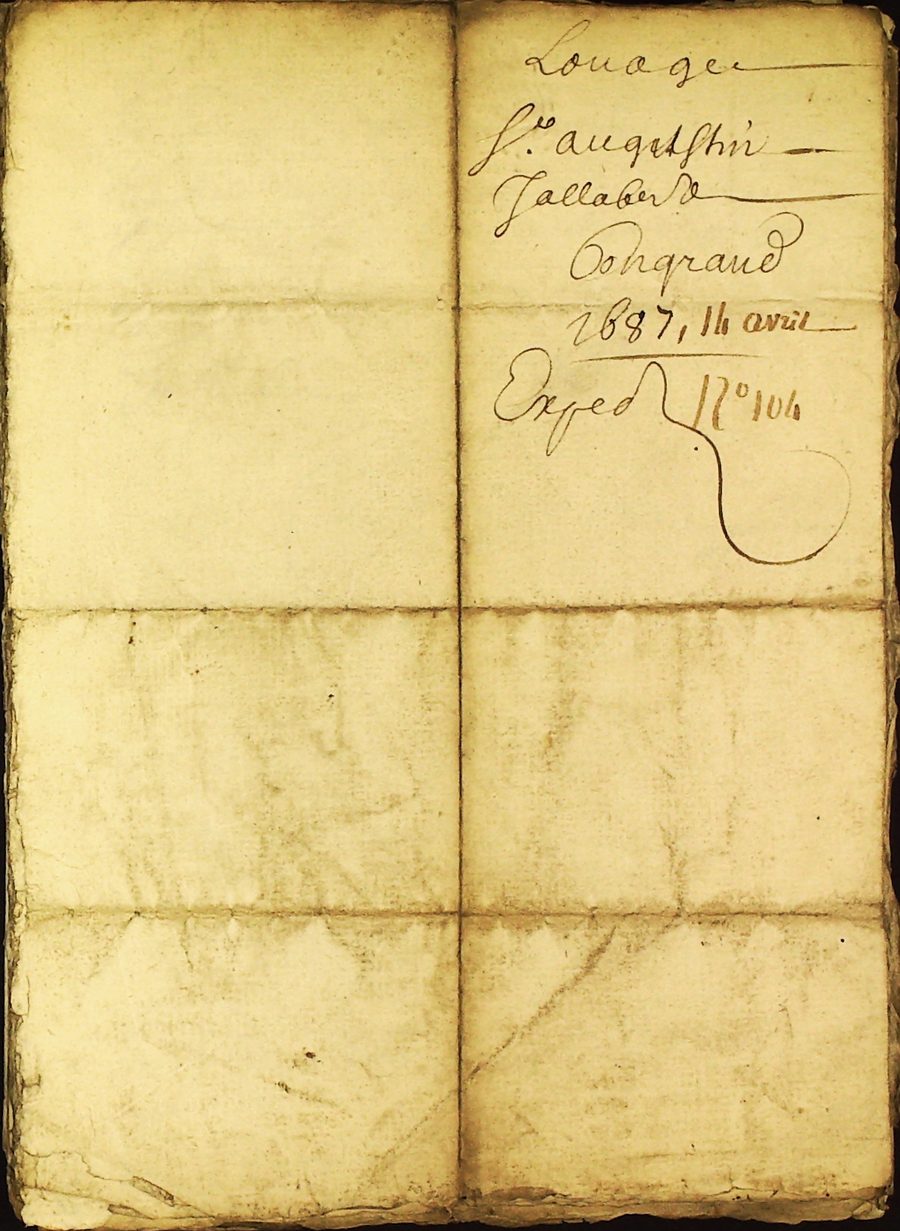 Louage
Sr. augustin
Jallaberd
Congrand
1687, 14 avril
Exped No 104